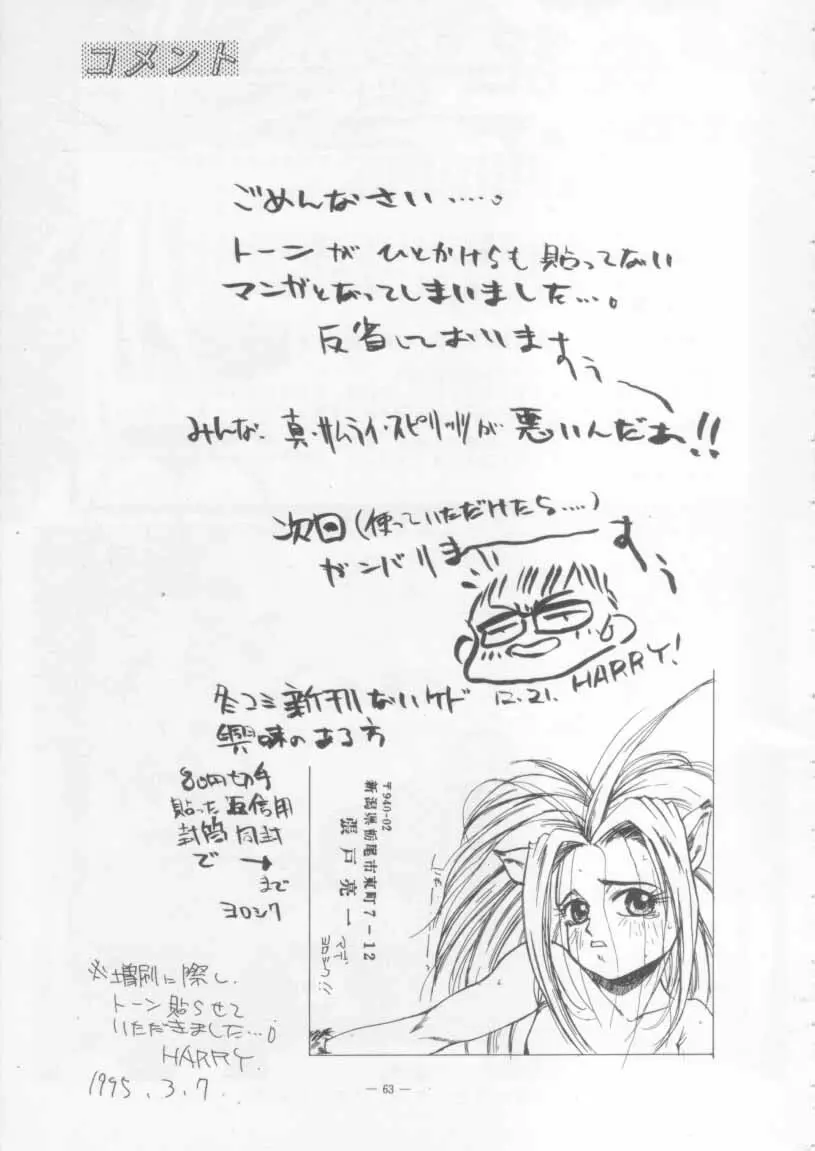 コメント
ごめんなさい・・・・・。
トーンがひとかけらも貼ってない
マンガとなってしまいました・・・。
反省しております
みんな、真・サムライ・スピリッツが悪いんだぁ!!
次回(使っていただけたら・・・・・)
ガンバリます
HARRY!
12.21.
冬コミ新刊ないケド
興味のある方
80円切手
貼った返信用
封筒同封
で→
まで
ヨロシク
〒940-02
新潟県栃尾市東町7-12
張戸亮一
マデ
ヨロシク!!
※増刷に際し、
トーン貼らせて
いただきました・・・。
HARRY.
1995.3.7.
— 63 —